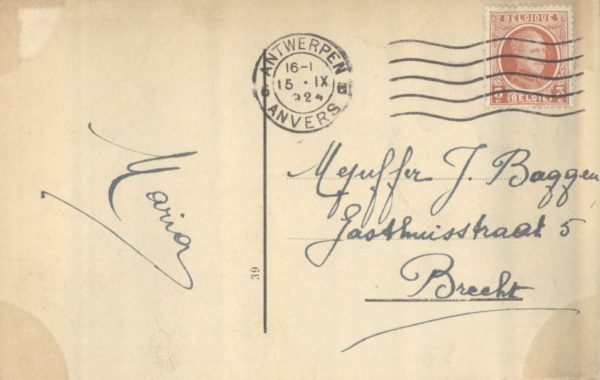 ANTWERPEN
16-1
15 · IX
924
6 B
ANVERS
BELGIQUE
5 5
(BELGIË)
Maria
39
Mejuffer J. Baggen
Gasthuisstraat 5
Brecht